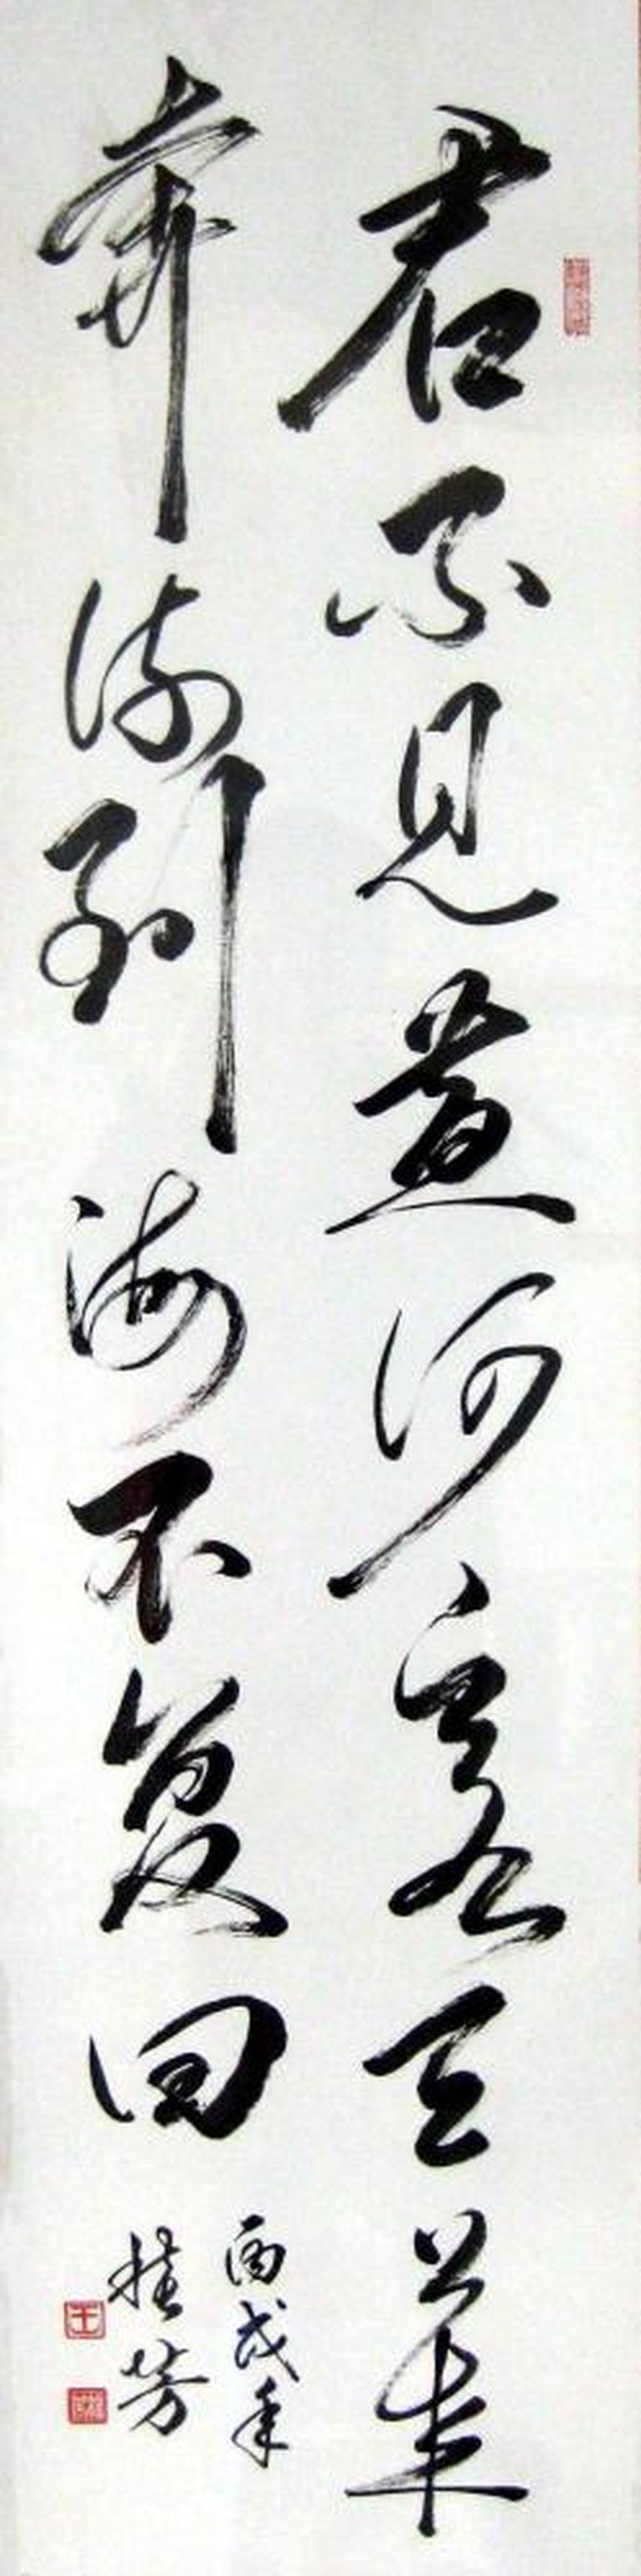 君不见黄河之水天上来
奔流到海不复回
丙戌年
桂芳
王